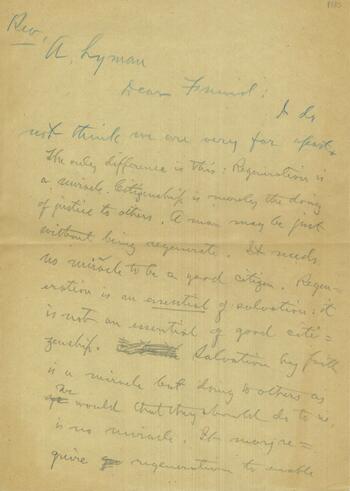 Rev.
A. Lyman
Dear Friend:
I do
not think we are very far apart.
The only difference is this: Regeneration is
a miracle. Citizenship is merely the doing
of justice to others. A man may be just
without being regenerate. It needs
no miracle to be a good citizen. Regen-
eration is an essential of salvation: it
is not an essential of good citi=
zenship. Salvation by faith
is a miracle but doing to others as
we would that they should do to us,
is no miracle. It may re=
quire regeneration to enable